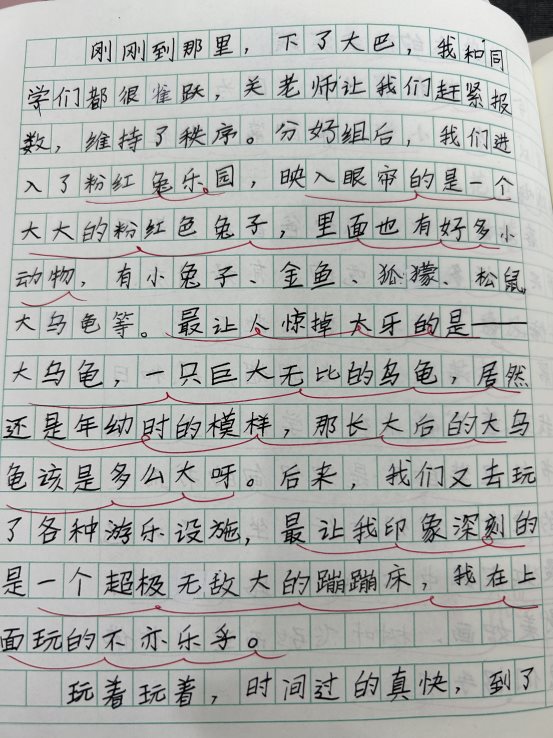 刚刚到那里，下了大巴，我和同
学们都很雀跃，关老师让我们赶紧报
数，维持了秩序。分好组后，我们进
入了粉红兔乐园，映入眼帘的是一个
大大的粉红色兔子，里面也有好多小
动物，有小兔子、金鱼、狐獴、松鼠、
大乌龟等。最让人惊掉大牙的是——
大乌龟，一只巨大无比的乌龟，居然
还是年幼时的模样，那长大后的大乌
龟该是多么大呀。后来，我们又去玩
了各种游乐设施，最让我印象深刻的
是一个超极无敌大的蹦蹦床，我在上
面玩的不亦乐乎。
玩着玩着，时间过的真快，到了